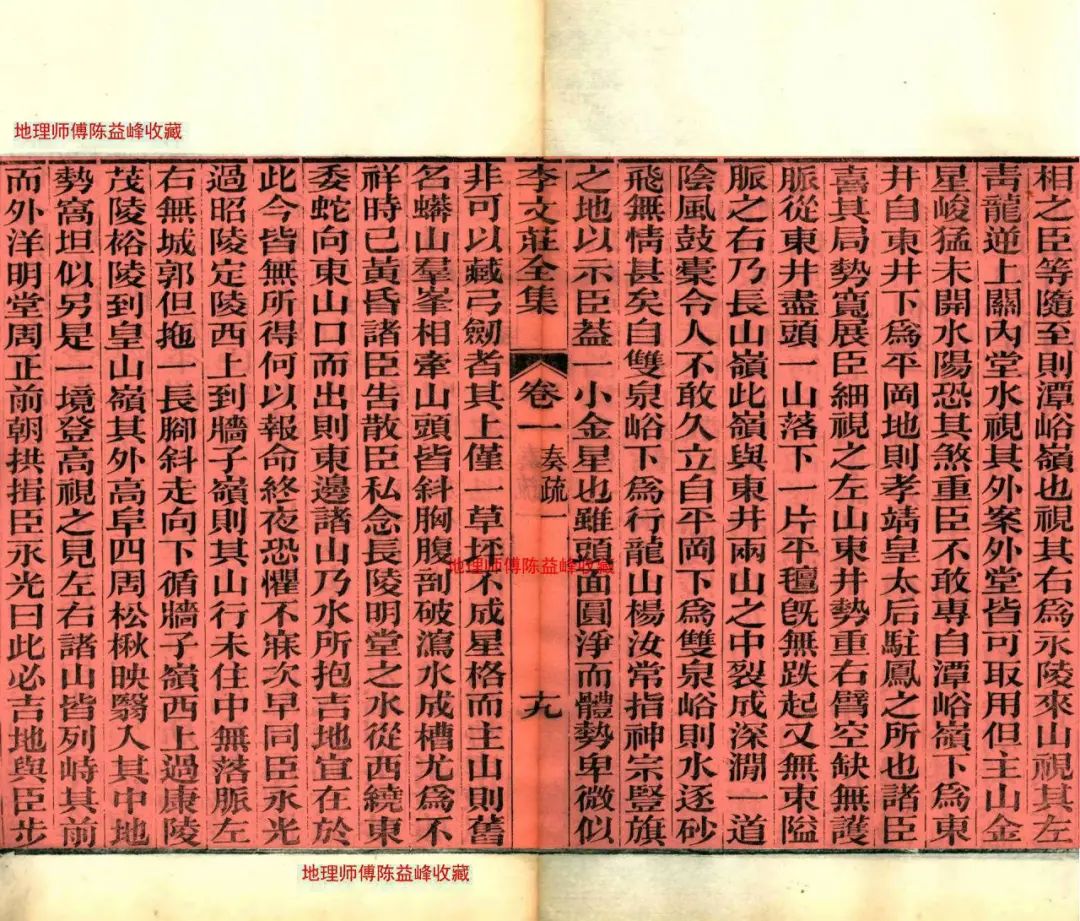 地理师傅陈益峰收藏
相之臣等隨至則潭峪嶺也視其右爲永陵來山視其左
青龍逆上關內堂水視其外案外堂皆可取用但主山金
星峻猛未開水陽恐其煞重臣不敢專自潭峪嶺下爲東
井自東井下爲平岡地則孝靖皇太后駐鳳之所也諸臣
喜其局勢寬展臣細視之左山東井勢重右臂空缺無護
脈從東井盡頭一山落下一片平氊旣無跌起又無束隘
脈之右乃長山嶺此嶺與東井兩山之中裂成深澗一道
陰風鼓橐令人不敢久立自平岡下爲雙泉峪則水逐砂
飛無情甚矣自雙泉峪下爲行龍山楊汝常指神宗豎旗
之地以示臣葢一小金星也雖頭面圓淨而體勢卑微似
李文莊全集
卷一
奏疏一
十九
非可以藏弓劒者其上僅一草坪不成星格而主山則舊
名蟒山羣峯相牽山頭皆斜胸腹剖破瀉水成槽尤爲不
祥時已黃昏諸臣告散臣私念長陵明堂之水從西繞東
委蛇向東山口而出則東邊諸山乃水所抱吉地宜在於
此今皆無所得何以報命終夜恐懼不寐次早同臣永光
過昭陵定陵西上到牆子嶺則其山行未住中無落脈左
右無城郭但拖一長腳斜走向下循牆子嶺西上過康陵
茂陵裕陵到皇山嶺其外高阜四周松楸映翳入其中地
勢窩坦似另是一境登高視之見左右諸山皆列峙其前
而外洋明堂周正前朝拱揖臣永光曰此必吉地與臣步
地理师傅陈益峰收藏
地理师傅陈益峰收藏